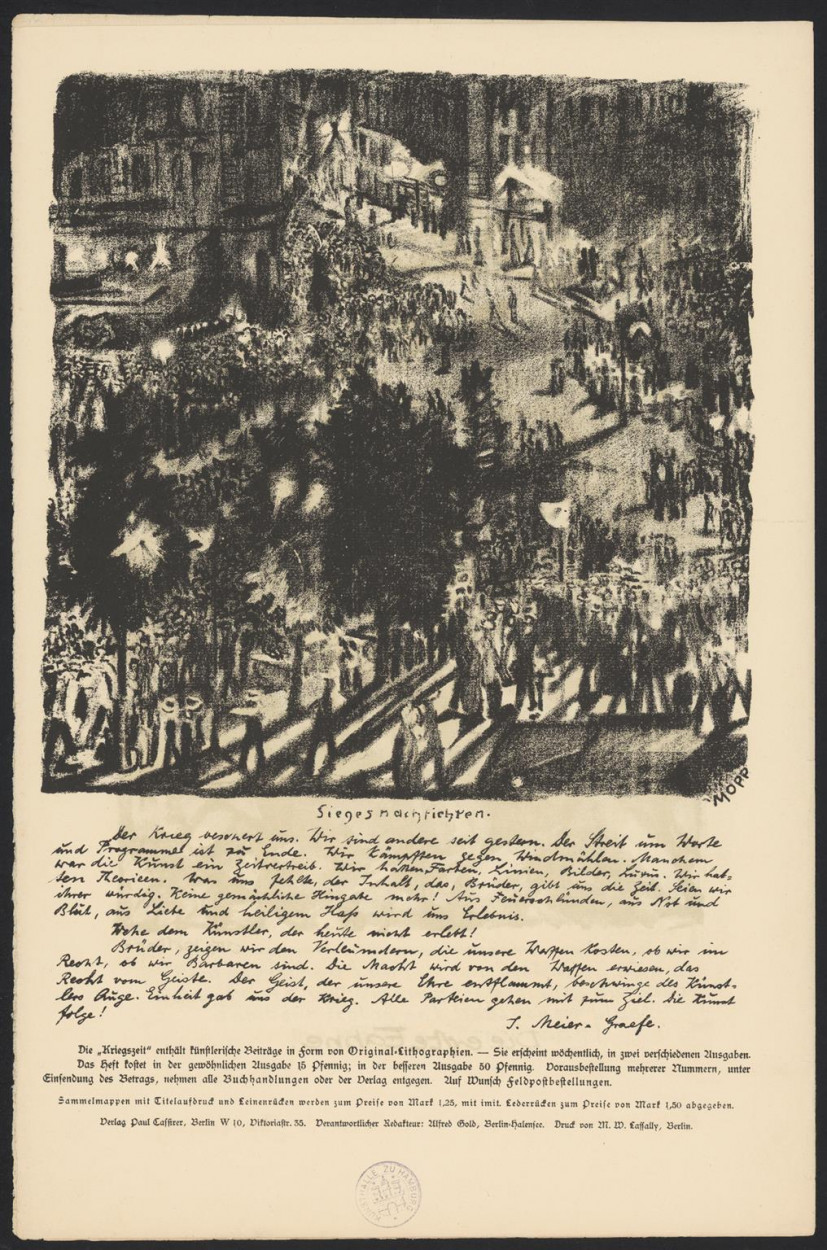 MOPP
Siegesnachrichten.
Der Krieg beschert uns. Wir sind andere seit gestern. Der Streit um Worte
und Programme ist zu Ende. Wir kämpften gegen Windmühlen. Manchem
war die Kunst ein Zeitvertreib. Wir hatten Farben, Linien, Bilder, Luxus. Wir hat-
ten Theorieen. Was uns fehlte, der Inhalt, das, Brüder, gibt uns die Zeit. Seien wir
ihrer würdig. Keine gemächliche Hingabe mehr! Aus Feuerschlünden, aus Not und
Blut, aus Liebe und heiligem Haß wird uns Erlebnis.
Wehe dem Künstler, der heute nicht erlebt!
Brüder, zeigen wir den Verleumdern, die unsere Waffen kosten, ob wir im
Recht, ob wir Barbaren sind. Die Macht wird von den Waffen erwiesen, das
Recht vom Geiste. Der Geist, der unsere Ehre entflammt, beschwinge des Künst-
lers Auge. Einheit gab uns der Krieg. Alle Parteien gehen mit zum Ziel. Die Kunst
folge!
J. Meier-Graefe.
Die „Kriegszeit“ enthält künstlerische Beiträge in Form von Original-Lithographien. — Sie erscheint wöchentlich, in zwei verschiedenen Ausgaben.
Das Heft kostet in der gewöhnlichen Ausgabe 15 Pfennig; in der besseren Ausgabe 50 Pfennig. Vorausbestellung mehrerer Nummern, unter
Einsendung des Betrags, nehmen alle Buchhandlungen oder der Verlag entgegen. Auf Wunsch Feldpostbestellungen.
Sammelmappen mit Titelaufdruck und Leinenrücken werden zum Preise von Mark 1,25, mit imit. Lederrücken zum Preise von Mark 1,50 abgegeben.
Verlag Paul Cassirer, Berlin W 10, Viktoriastr. 35. Verantwortlicher Redakteur: Alfred Gold, Berlin-Halensee. Druck von M. W. Lassally, Berlin.
KUNSTHALLE ZU HAMBURG